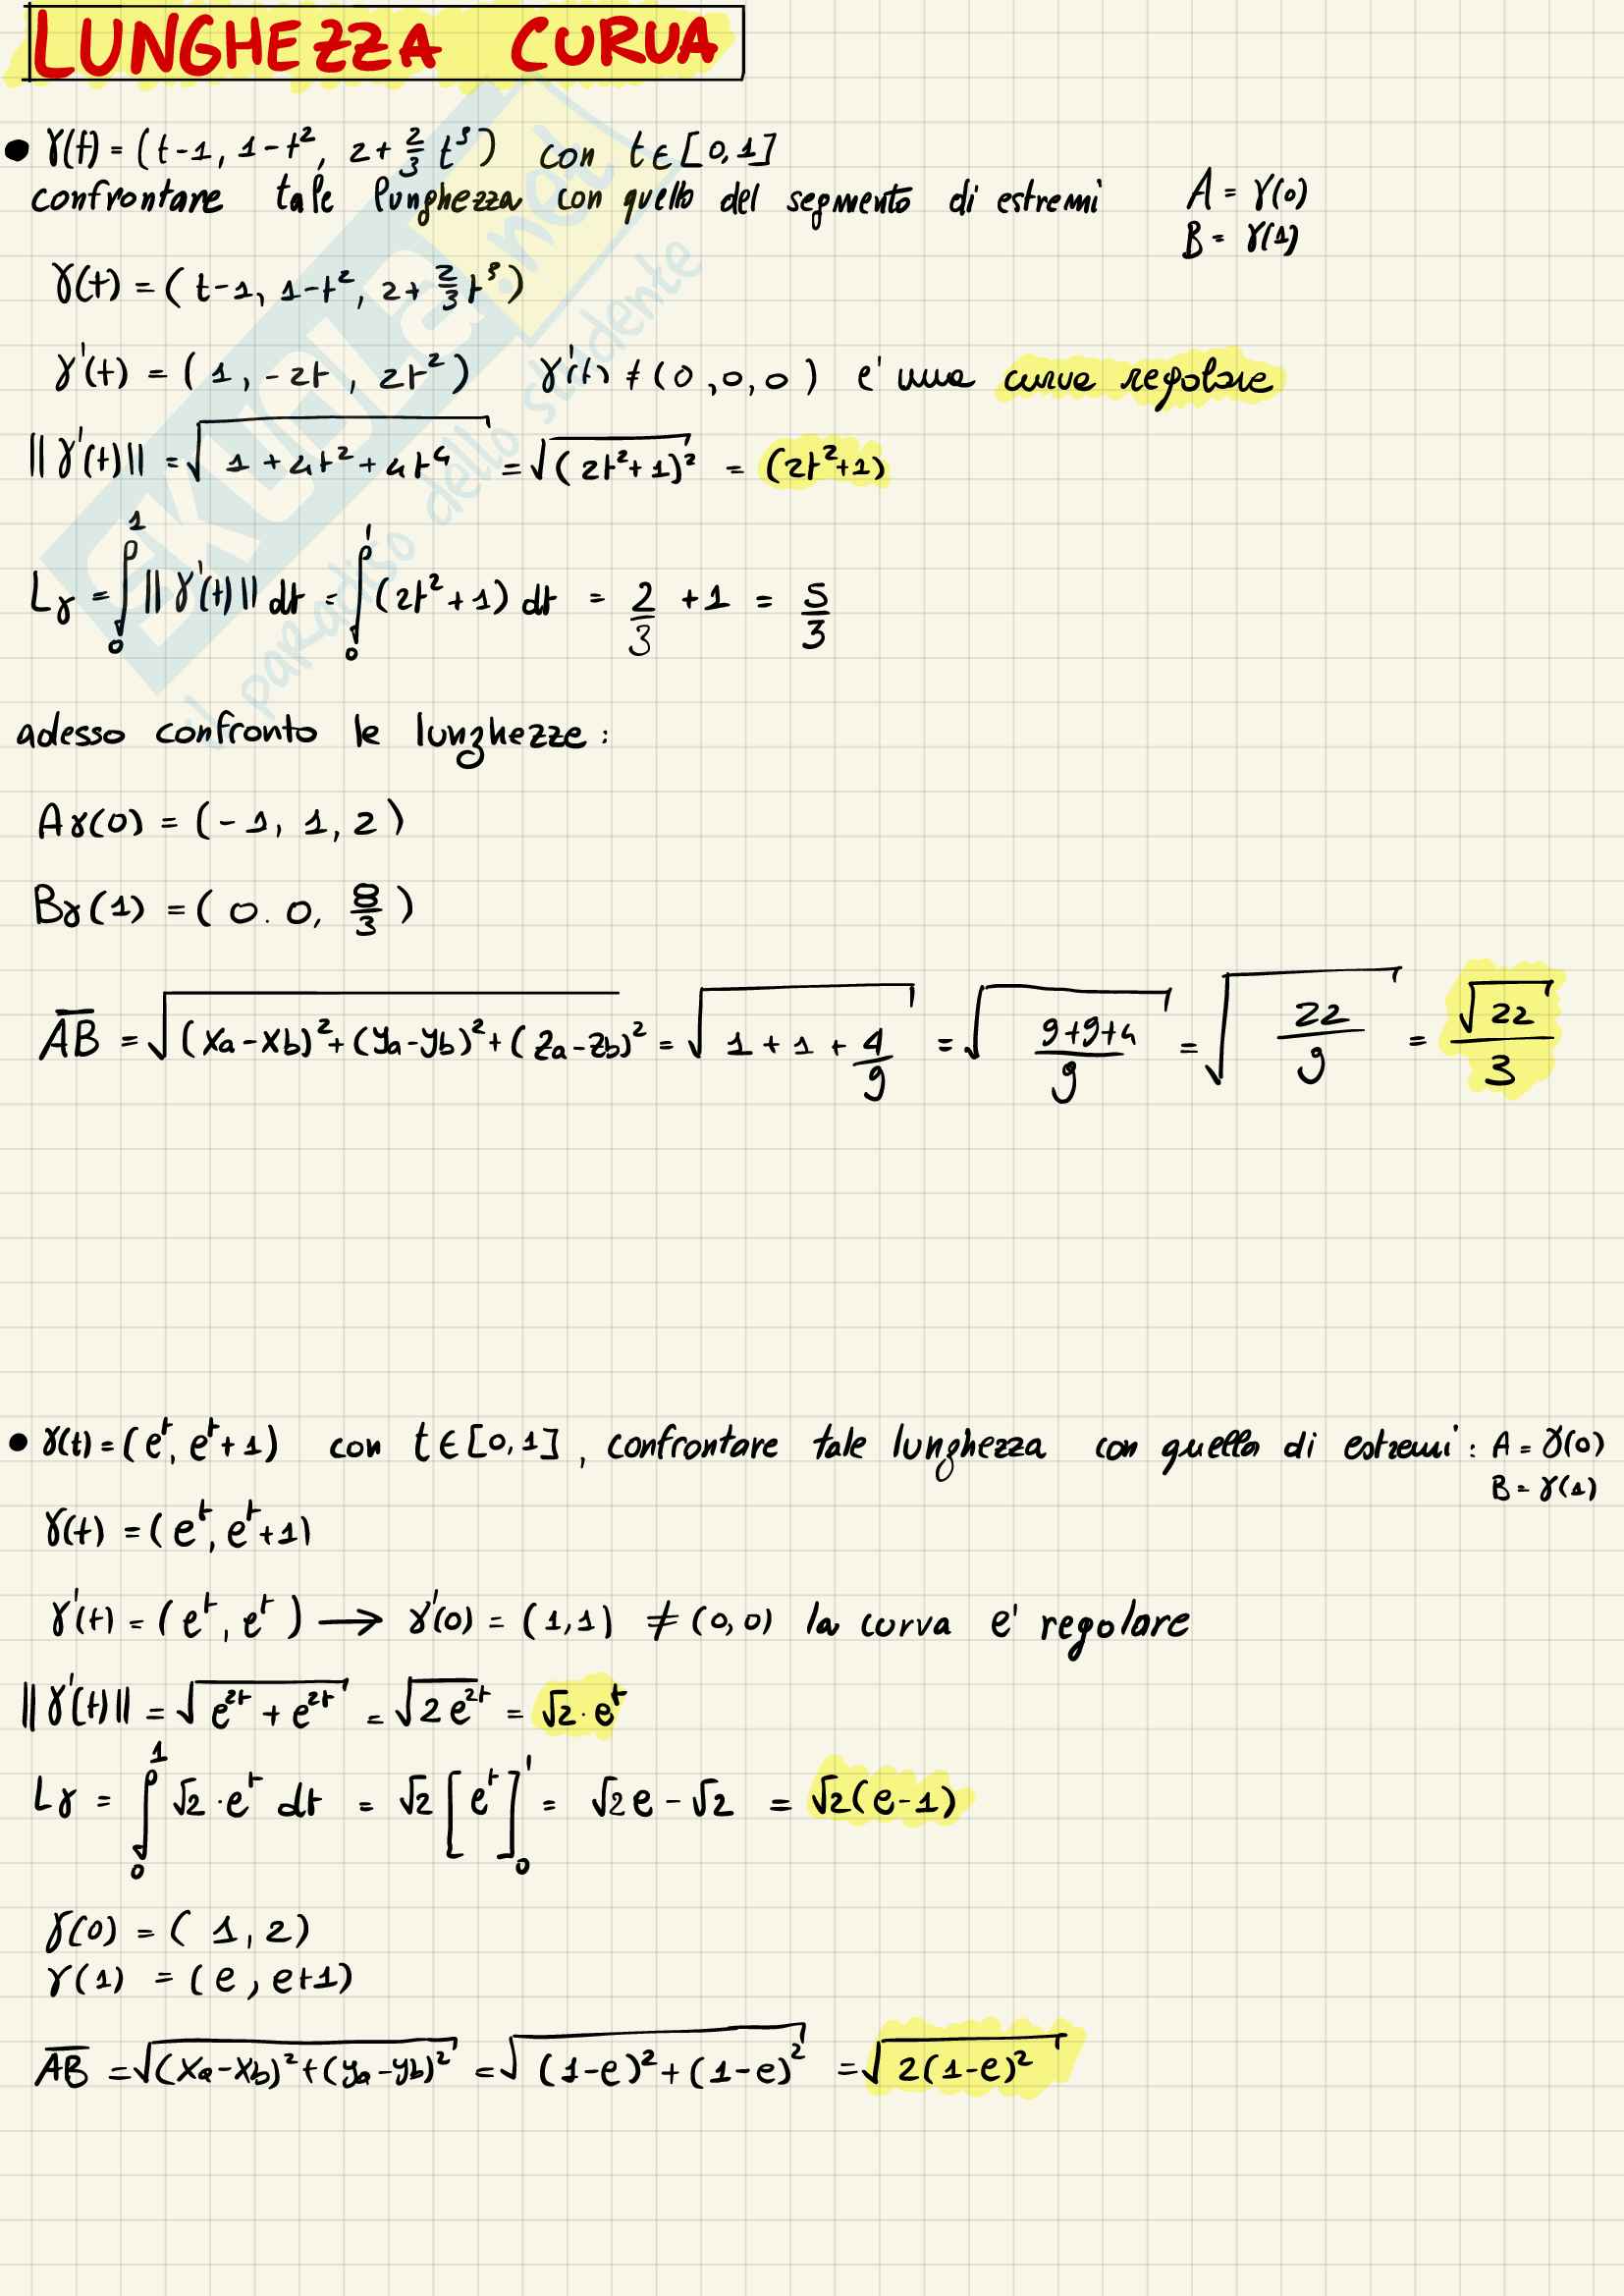 LUNGHEZZA CURVA
• γ(t) = (t-1, 1-t², 2+ 2/3 t³) con t∈[0,1]
confrontare tale lunghezza con quello del segmento di estremi A = γ(0)
B = γ(1)
γ(t) = (t-1, 1-t², 2+ 2/3 t³)
γ'(t) = (1, -2t, 2t²) γ'(t) ≠ (0,0,0) e' una curva regolare
||γ'(t)|| = √(1+4t²+4t⁴) = √((2t²+1)²) = (2t²+1)
Lγ = ∫₀¹ ||γ'(t)|| dt = ∫₀¹ (2t²+1) dt = 2/3 +1 = 5/3
adesso confronto le lunghezze:
Aγ(0) = (-1, 1, 2)
Bγ(1) = (0. 0, 8/3)
AB = √((xa-xb)²+(ya-yb)²+(za-zb)²) = √(1+1+4/9) = √((9+9+4)/9) = √(22/9) = √22/3
• γ(t) = (eᵗ, eᵗ+1) con t∈[0,1], confrontare tale lunghezza con quella di estremi: A = γ(0)
B = γ(1)
γ(t) = (eᵗ, eᵗ+1)
γ'(t) = (eᵗ, eᵗ) → γ'(0) = (1,1) ≠ (0,0) la curva e' regolare
||γ'(t)|| = √(e²ᵗ + e²ᵗ) = √(2e²ᵗ) = √2 · eᵗ
Lγ = ∫₀¹ √2 · eᵗ dt = √2 [eᵗ]₀¹ = √2e - √2 = √2(e-1)
γ(0) = (1, 2)
γ(1) = (e, e+1)
AB = √((xa-xb)²+(ya-yb)²) = √((1-e)²+(1-e)²) = √(2(1-e)²)
SKUOLA.net
il paradiso dello studente